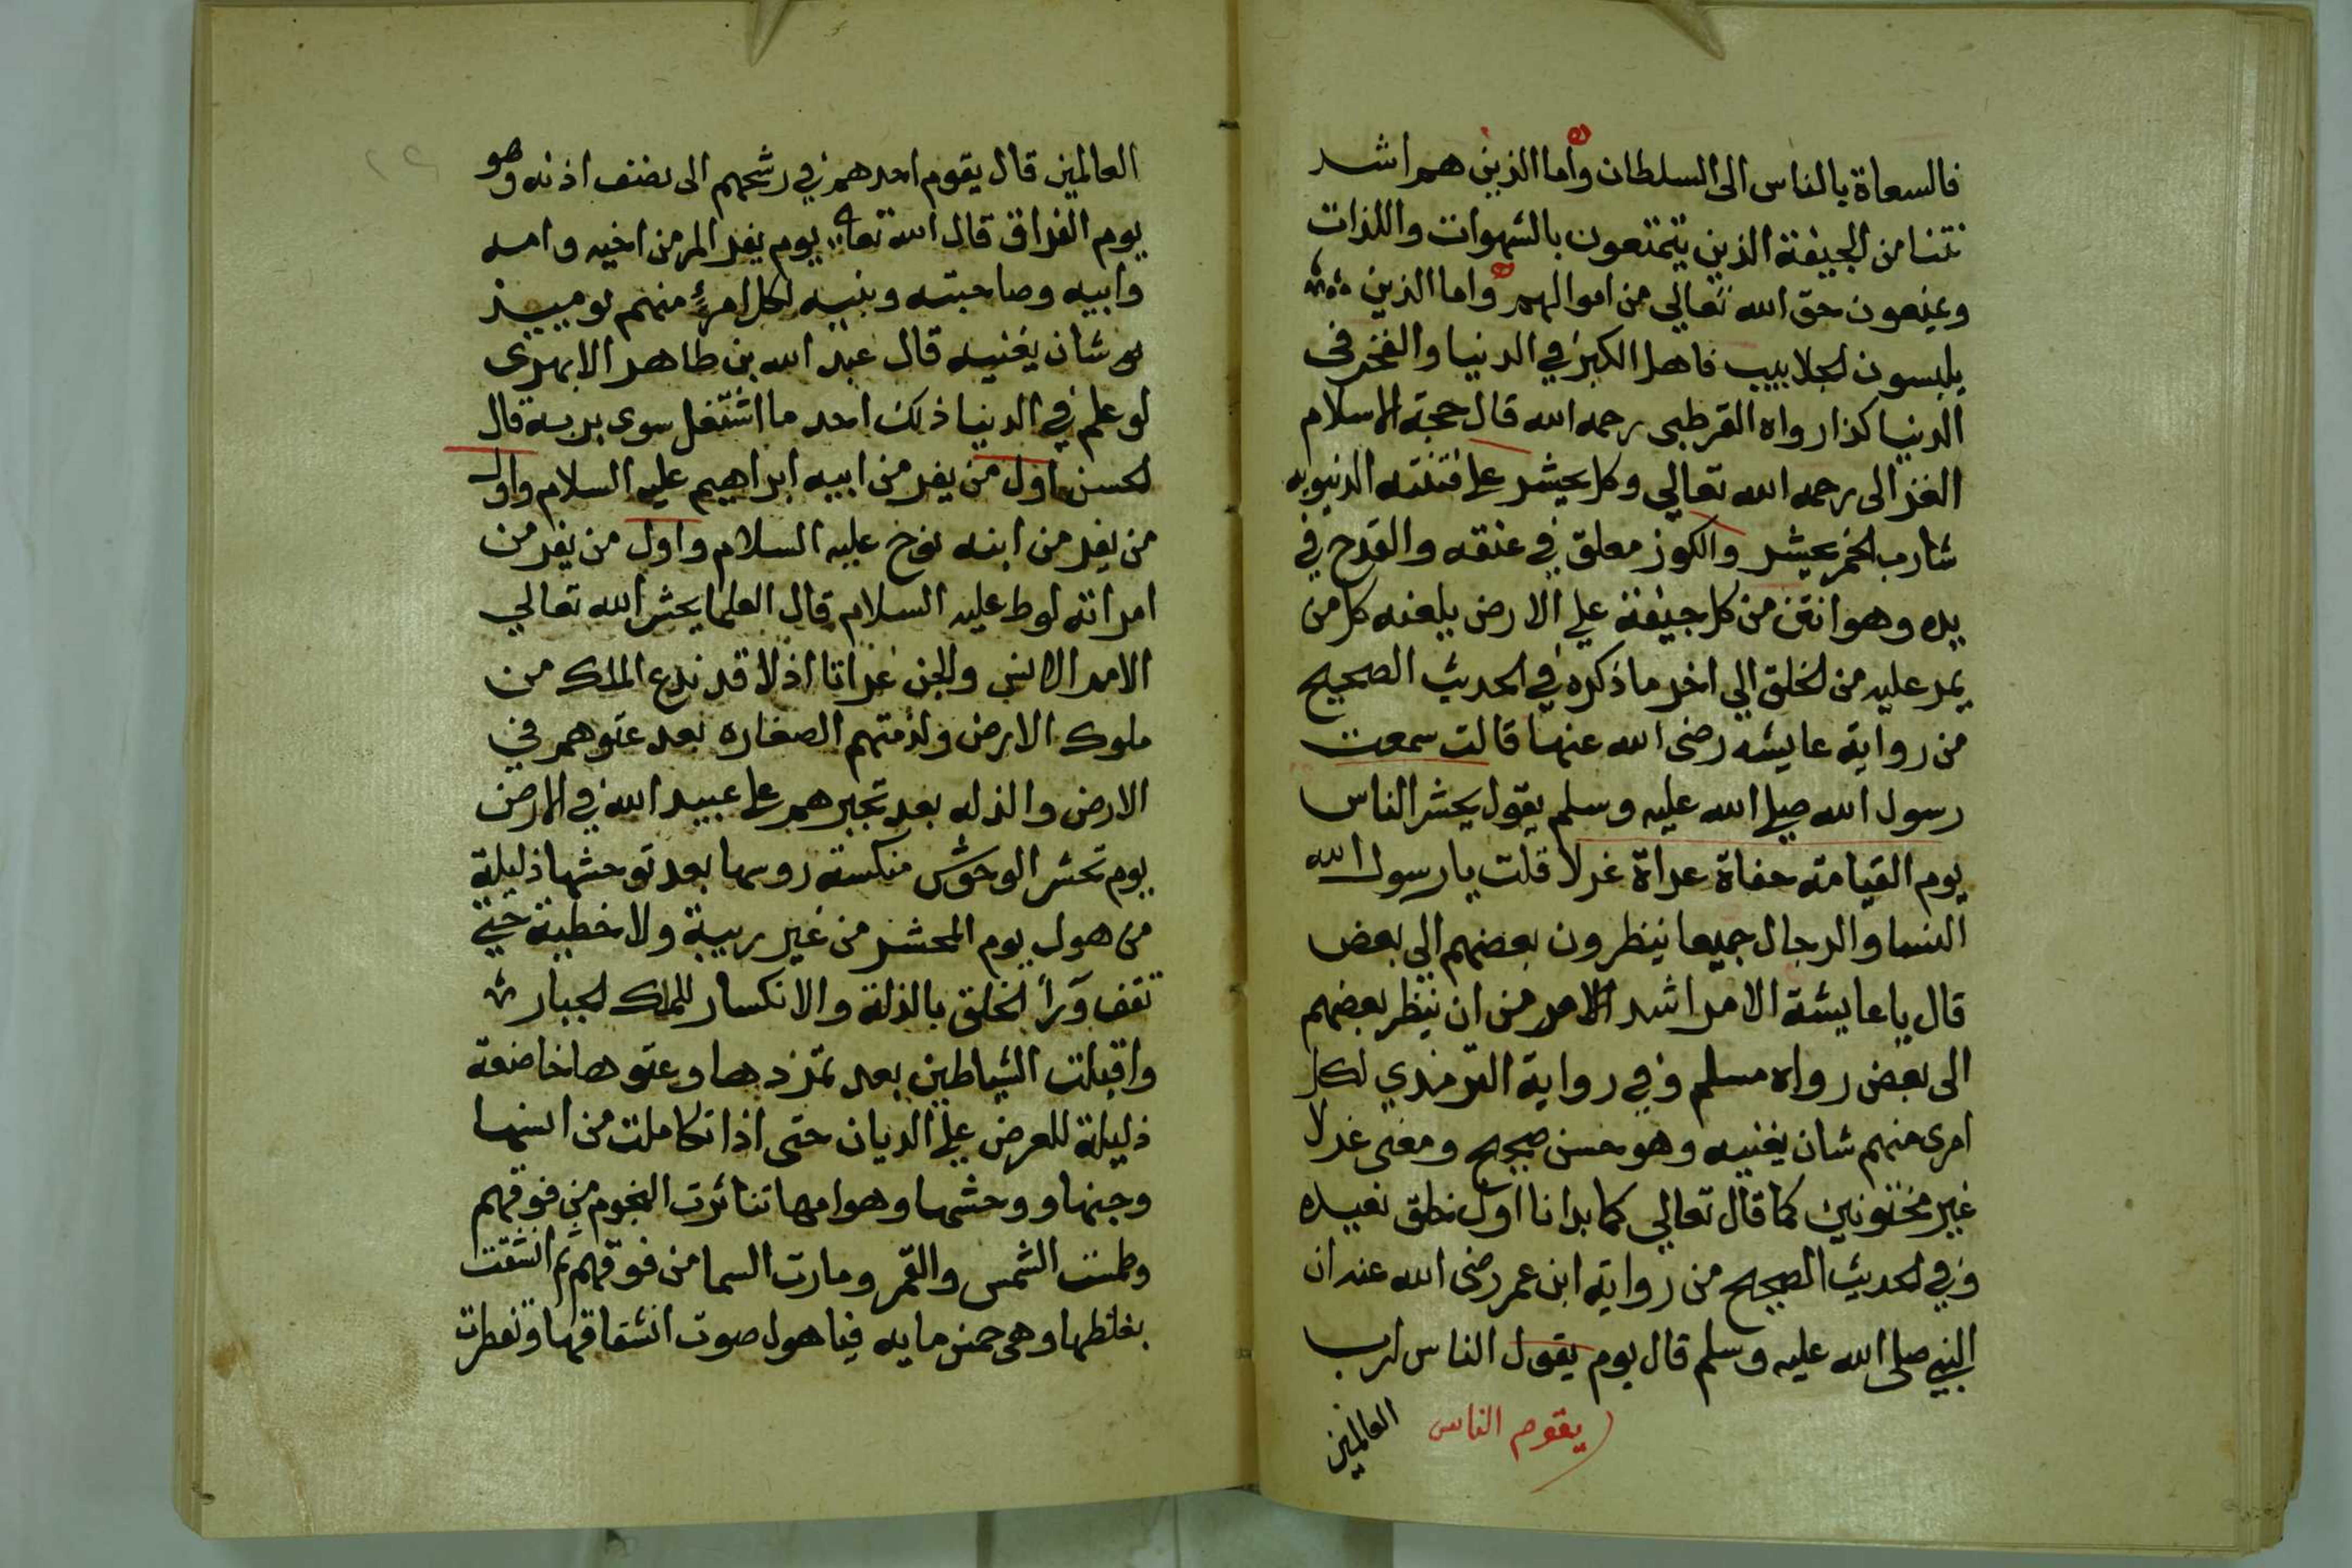 فالسعاة بالناس الى السلطان واما الذين هم اشد
نتنا من الجيفة الذين يتمتعون بالشهوات واللذات
ويمنعون حق الله تعالي من اموالهم واما الذين
يلبسون الجلابيب فاهل الكبر في الدنيا والفخر في
الدنيا كذا رواه القرطبى رحمه الله قال حجة الاسلام
الغزالى رحمه الله تعالي وكل يحشر على فتنته الدنيويه
شارب الخمر يحشر والكوز معلق في عنقه والقدح في
يده وهو انتن من كل جيفة علي الارض يلعنه كل من
يمر عليه من الخلق الي اخر ما ذكره في الحديث الصحيح
من رواية عايشه رضى الله عنها قالت سمعت
رسول الله صلي الله عليه وسلم يقول يحشر الناس
يوم القيامة حفاة عراة غرلا قلت يا رسول الله
النسا والرجال جميعا ينظرون بعضهم الي بعض
قال يا عايشة الامر اشد الامر من ان ينظر بعضهم
الى بعض رواه مسلم وفي رواية الترمذي لكل
امرى منهم شان يغنيه وهو حسن صحيح ومعنى غرلا
غير مختونين كما قال تعالي كما بدانا اول خلق نعيده
وفي الحديث الصحيح من رواية ابن عمر رضى الله عنه ان
النبي صلى الله عليه وسلم قال يوم يقول الناس لرب
يقوم الناس
العالمين
العالمين قال يقوم احدهم في رشحهم الى نصف اذنه وهو
يوم الفراق قال الله تعا يوم يفر المر من اخيه وامه
وابيه وصاحبته وبنيه لكل امرئ منهم يومييذ
شان يغنيه قال عبد الله بن طاهر الابهرى
لو علم في الدنيا ذلك احد ما اشتغل سوى بربه قال
الحسن اول من يفر من ابيه ابراهيم عليه السلام واول
من يفر من ابنه نوح عليه السلام واول من يفر من
امراته لوط عليه السلام قال العلما يحشر الله تعالي
الامم الانس والجن عراتا اذلا قد نزع الملك من
ملوك الارض ولزمتهم الصغاره بعد عتوهم في
الارض والذله بعد تجبرهم على عبيد الله في الارض
يوم تحشر الوحوش منكسة روسها بعد توحشها ذليلة
من هول يوم المحشر من غير ريبة ولا خطية حتي
تقف ورأ الخلق بالذلة والانكسار للملك الجبار
واقبلت الشياطين بعد تمردها وعتوها خاضعة
ذليلة للعرض علي الديان حتى اذا تكاملت من انسها
وجنها ووحشها وهوامها تناثرت النجوم من فوقهم
وطمست الشمس والقمر ومارت السما من فوقهم ثم انشقت
بغلظها وهى خمس مايه فيا هول صوت انشقاقها وتفطرت